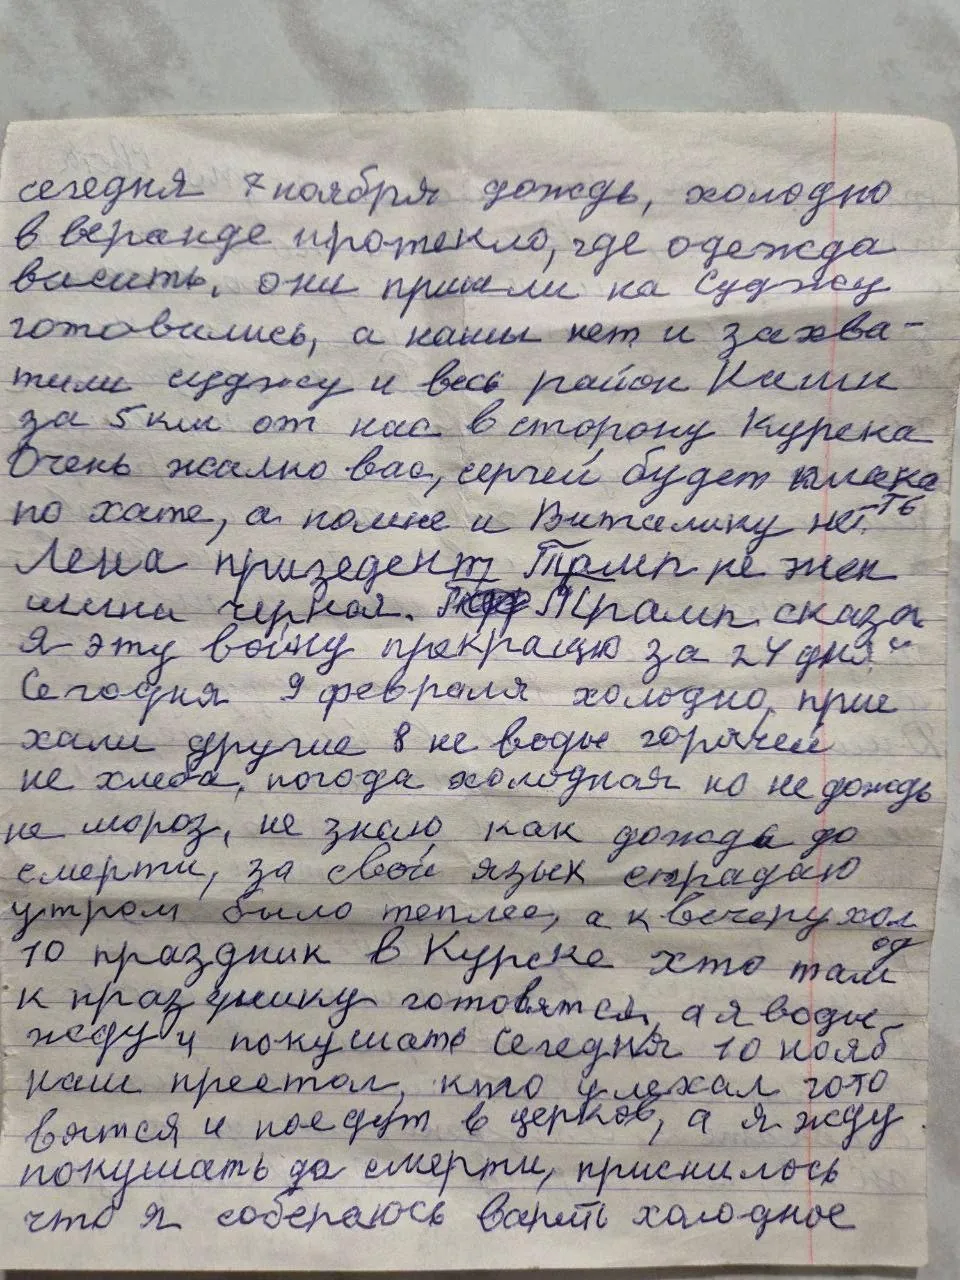 сегедня 7 ноября дождь, холодно
в веранде протекло, где одежда
висить, они пришли на Суджу
готовились, а нашы нет и захва-
тили суджу и весь район
за 5 км от нас в сторону Курска
Очень жалко вас, сергей будет плака
ть
по хате, а помне и Виталику нет.
Лена призедент Трамп не жен
шина черная. Трамп сказал
я эту войну прекращю за 24 дня"
Сегодня 9 февраля холодно, прие
хали другие 8 не воды горячей
не хлеба, погода холодная но не дождь
не мороз, не знаю как дождь до
смерти, за свой язык страдаю
утром было теплее, а к вечеру хол
од
10 праздник в Курске хто там
к празднику готовятся, а я воды
жду и покушать Сегедня 10 нояб
наш престол, кто уехал гото
вится и поедут в церков, а я жду
покушать до смерти, приснилось
что я собераюсь варить холодное